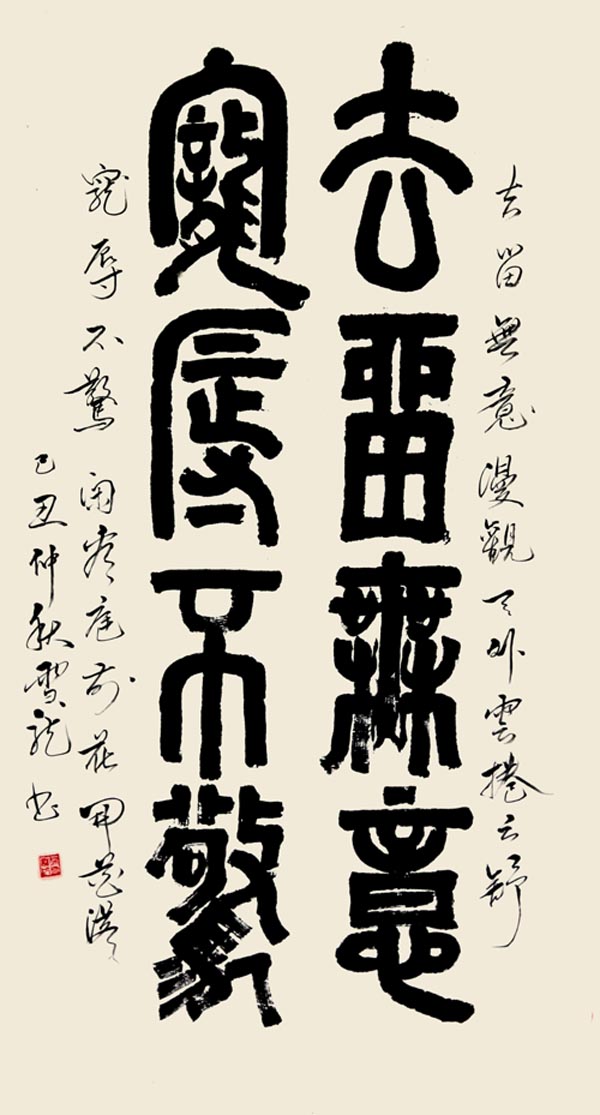 去留無意漫觀天外雲捲云舒
去留無意
寵辱不驚
寵辱不驚闲看庭前花開花落
己丑仲秋雪龍书